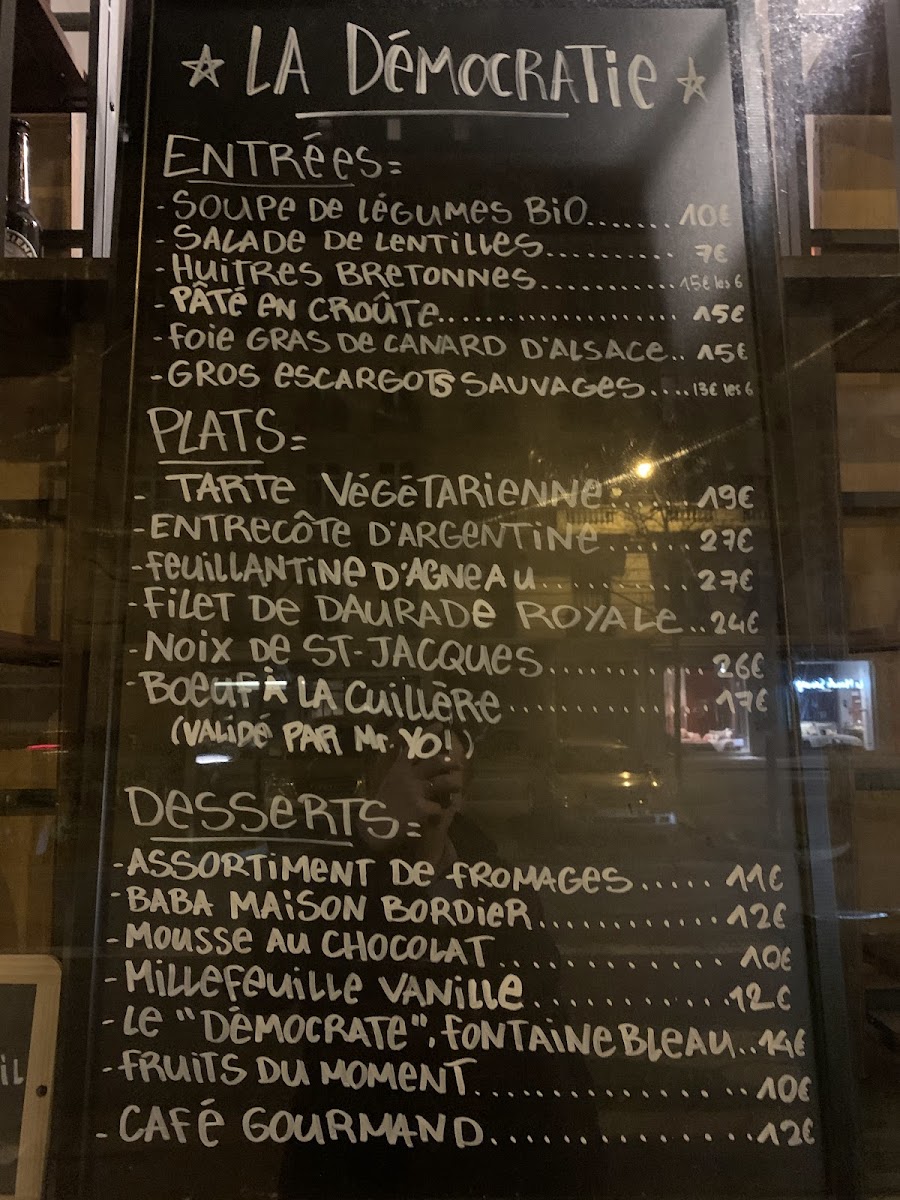 ☆ LA DÉMOCRATIE ☆
ENTRÉES=
- SOUPE DE LÉGUMES BIO....... 10€
- SALADE DE LENTILLES.......... 7€
- HUITRES BRETONNES........... 15€ les 6
- PÂTÉ EN CROÛTE.................... 15€
- FOIE GRAS DE CANARD D'ALSACE.. 15€
- GROS ESCARGOTS SAUVAGES.... 13€ les 6
PLATS=
- TARTE VÉGÉTARIENNE....... 19€
- ENTRECÔTE D'ARGENTINE...... 27€
- FEUILLANTINE D'AGNEAU........... 27€
- FILET DE DAURADE ROYALE.. 24€
- NOIX DE ST-JACQUES........... 26€
- BOEUF À LA CUILLÈRE.............. 17€
(VALIDÉ PAR Mr. YO!)
DESSERTS=
- ASSORTIMENT DE FROMAGES..... 11€
- BABA MAISON BORDIER............ 12€
- MOUSSE AU CHOCOLAT.............. 10€
- MILLEFEUILLE VANILLE............ 12€
- LE "DÉMOCRATE", FONTAINEBLEAU.. 14€
- FRUITS DU MOMENT.................. 10€
- CAFÉ GOURMAND.................. 12€
IL